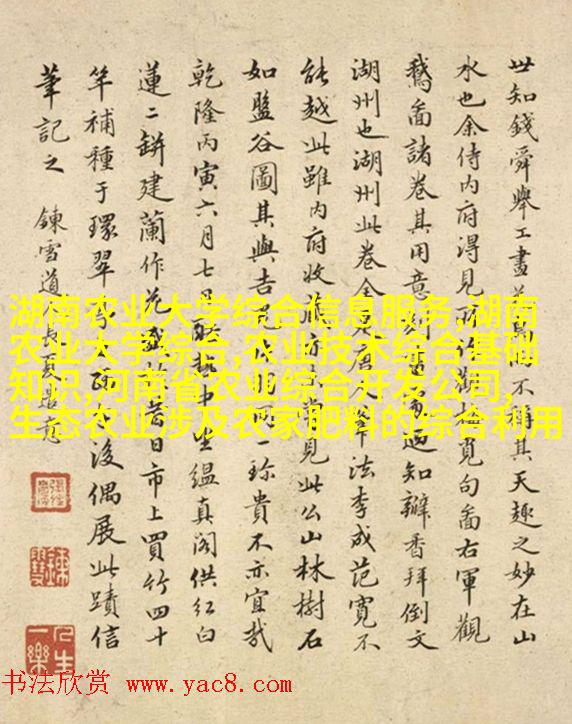 世知錢舜舉工畫而不解其天趣之妙在山
水也余侍内府得見所作觀梅覓句畵右軍觀
鵝畵諸卷其用意刻過知瓣香拜倒文
湖州也湖州此卷全唐人筆法李成范寬不
能越此雖内府收見此公山林樹石
如盤谷圖其與吉一珍貴不亦宜哉
乾隆丙寅六月七日中坐緼真阁供紅白
蓮二缾建蘭作花日市上買竹四十
竿補種于環翠後偶展此蹟信
筆記之 鍊雪道長
湖南农业大学综合信息服务,湖南
农业大学综合,农业技术综合基础
知识,河南省农业综合开发公司,
生态农业涉及农家肥料的综合利用
人生一樂
书法欣赏 www.yac8.com